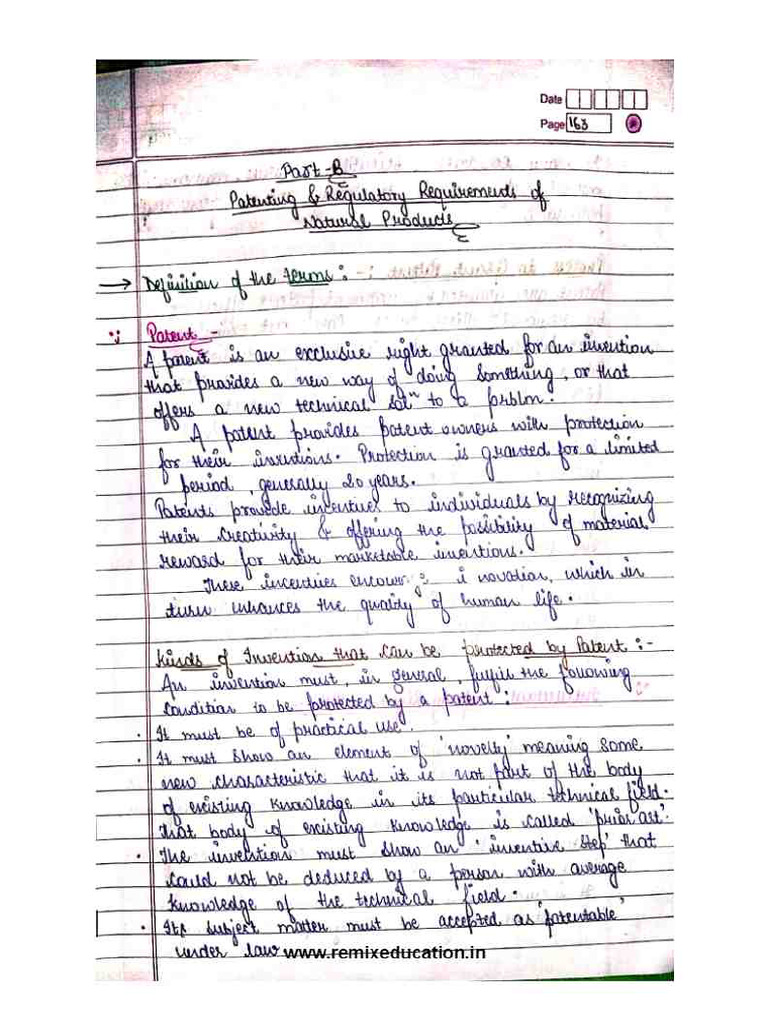 Date
Page 163
Part-B
Patenting & Regulatory Requirements of
Natural Products
→ Definition of the terms :-
Patent -
A patent is an exclusive right granted for an invention
that provides a new way of doing something, or that
offers a new technical solⁿ to a problm.
A patent provides patent owners with protection
for their inventions. Protection is granted for a limited
period, generally 20 years.
Patents provide incentives to individuals by recognizing
their creativity & offering the possibility of material
reward for their marketable inventions.
These incentives i novation, which in
turn enhances the quality of human life.
Kinds of Invention that can be protected by Patent :-
An invention must, in general, fulfil the following
condition to be protected by a patent :
· It must be of practical use.
· It must show an element of 'novelty' meaning some
new characteristic that it is not part of the body
of existing knowledge in its particular technical field.
That body of existing knowledge is called 'prior art'.
· The invention must show an 'inventive step' that
could not be deduced by a person with average
knowledge of the technical field.
· Its subject matter must be accepted as 'patentable'
under law
www.remixeducation.in